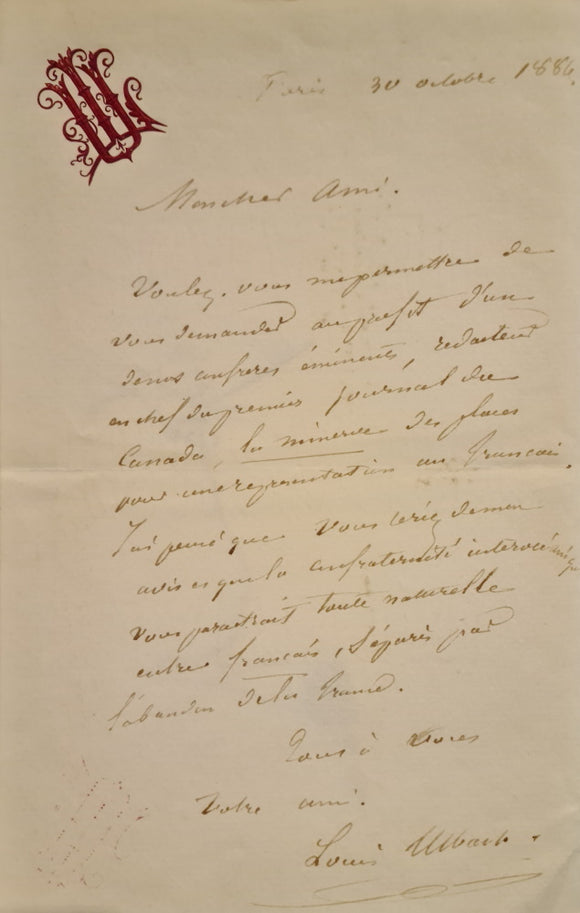 LU
Paris 30 octobre 1886.
Mon cher Ami.
Voulez-vous me permettre de
vous demander au profit d'un
de nos confreres éminents, redacteur
en chef du premier journal du
Canada, la minerve des places
pour une representation au français.
J'ai pensé que vous seriez de mon
avis et que la confraternité interocéanique
vous paraitrait toute naturelle
entre français, séparés par
l'abandon de la France.
Tous à vous
Votre ami.
Louis Ulbach.